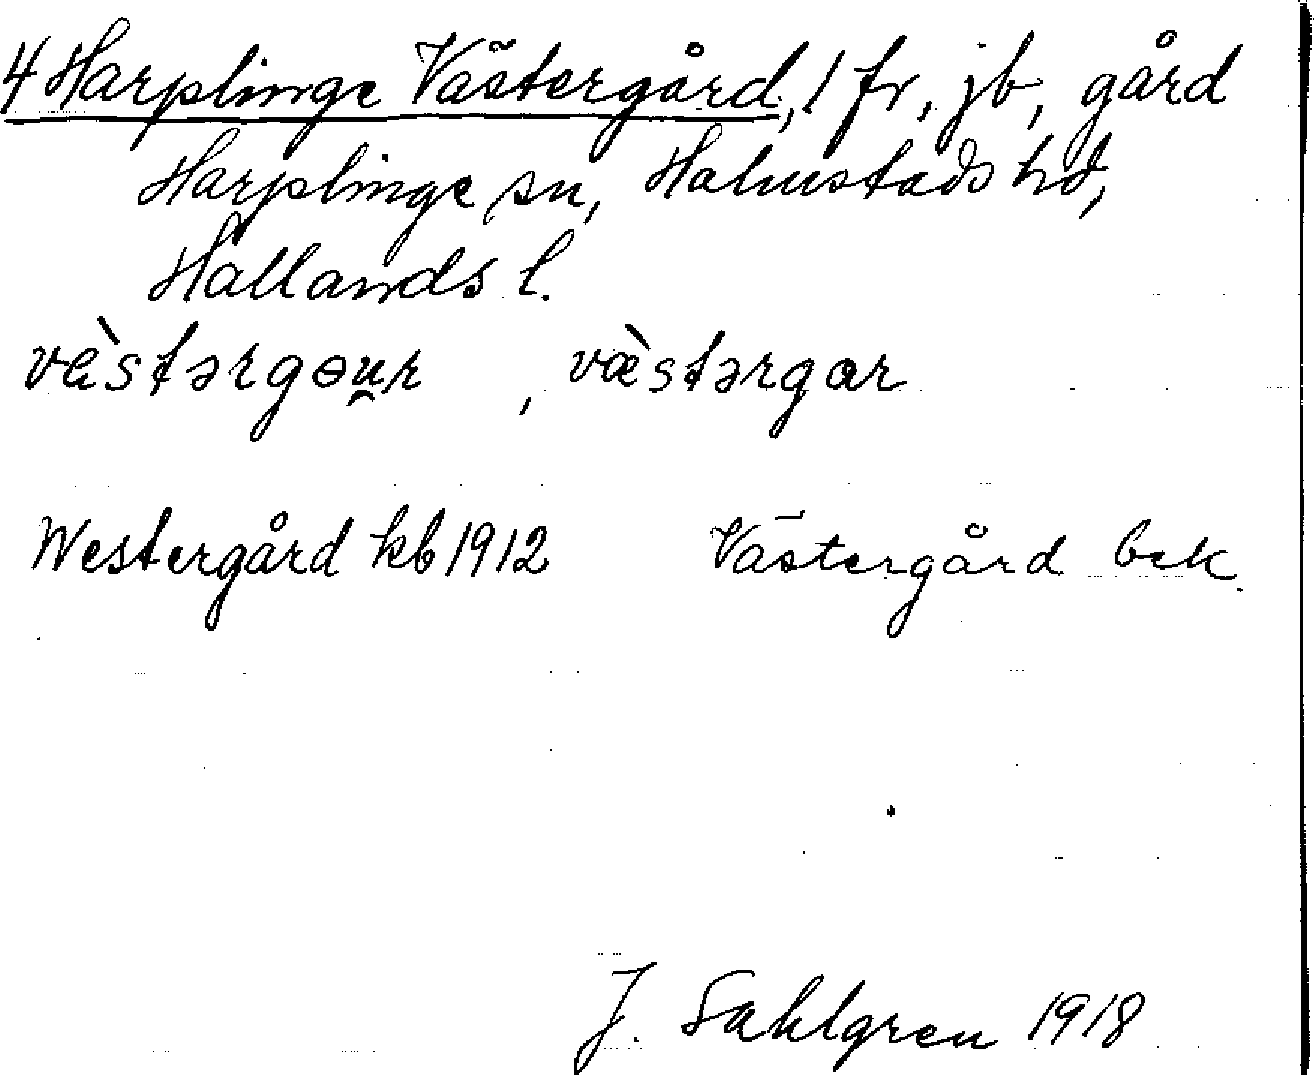 4 Harplinge Västergård, 1 fr, jb, gård
Harplinge sn, Halmstads hd,
Hallands l.
vὲstərgɵu̯r , væ̀stərgar
Westergård kb 1912 Västergård bek.
J. Sahlgren 1918